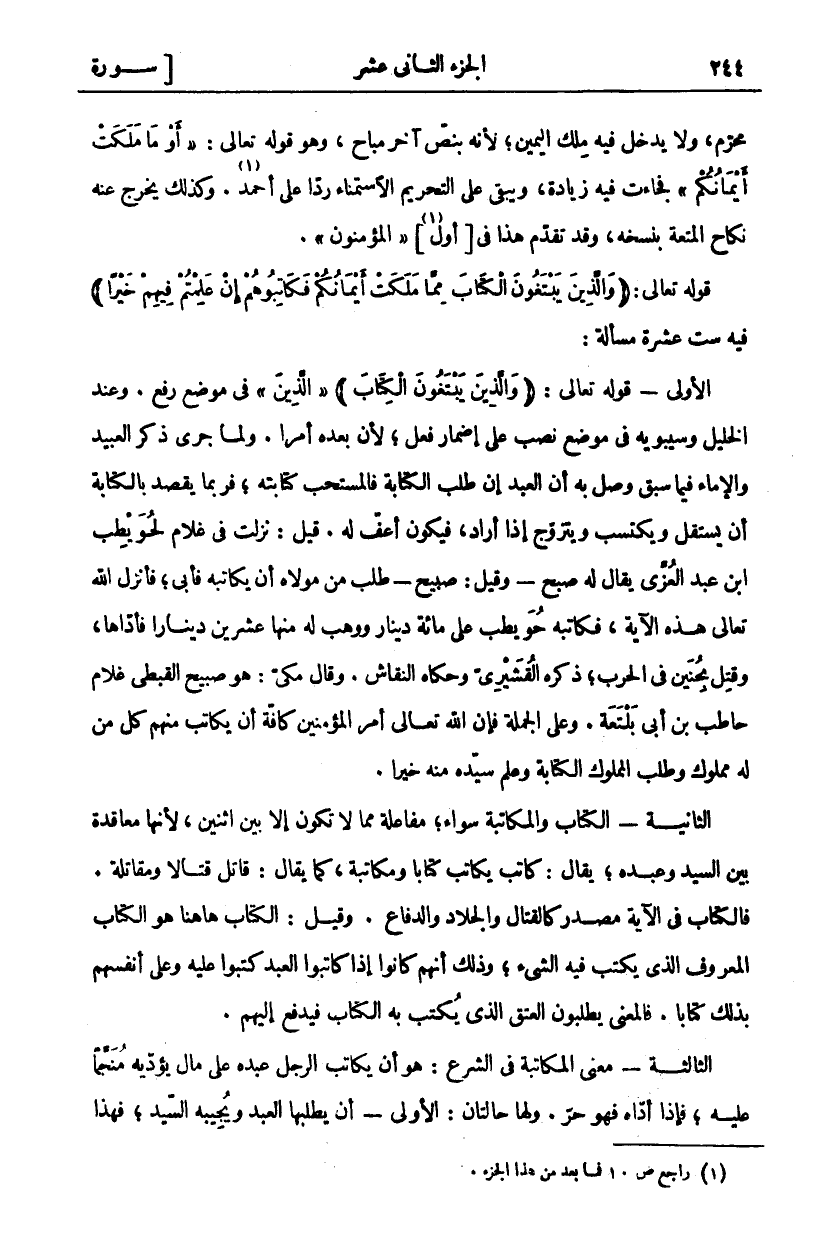 ٢٤٤ الجزء الثانى عشر [ ســورة
محرّم، ولا يدخل فيه مِلك اليمين؛ لأنه بنصّ آخر مباح ، وهو قوله تعالى : « أَوْ مَا مَلَكَتْ
أَيْمَانُكُمْ » فجاءت فيه زيادة، ويبقى على التحريم الاستمناء ردّا على أحمد (١) . وكذلك يخرج عنه
نكاح المتعة بنسخه، وقد تقدّم هذا فى [ أول (١) ] « المؤمنون » .
قوله تعالى : ﴿ وَالَّذِينَ يَبْتَغُونَ الْكِتَابَ مِمَّا مَلَكَتْ أَيْمَانُكُمْ فَكَاتِبُوهُمْ إِنْ عَلِمْتُمْ فِيهِمْ خَيْرًا ﴾
فيه ست عشرة مسألة :
الأولى — قوله تعالى : ﴿ وَالَّذِينَ يَبْتَغُونَ الْكِتَابَ ﴾ « الَّذِينَ » فى موضع رفع . وعند
الخليل وسيبويه فى موضع نصب على إضمار فعل ؛ لأن بعده أمرا . ولما جرى ذكر العبيد
والإماء فيما سبق وصل به أن العبد إن طلب الكتابة فالمستحب كتابته ؛ فربما يقصد بالكتابة
أن يستقل ويكتسب ويتزوّج إذا أراد، فيكون أعفّ له . قيل : نزلت فى غلام لحُوَيْطِب
ابن عبد العُزَّى يقال له صبح — وقيل : صبيح — طلب من مولاه أن يكاتبه فأبى ؛ فأنزل الله
تعالى هــذه الآية ، فكاتبه حُوَيطب على مائة دينار ووهب له منها عشرين دينــارا فأدّاها،
وقتِل بحُنَين فى الحرب؛ ذكره القُشَيْرِىّ وحكاه النقاش . وقال مكىّ : هو صبيح القبطى غلام
حاطب بن أبى بَلْتَعَة . وعلى الجملة فإن الله تعــالى أمر المؤمنين كافّة أن يكاتب منهم كل من
له مملوك وطلب المملوك الكتابة وعلم سيّده منه خيرا .
الثانيــة — الكتاب والمكاتبة سواء؛ مفاعلة مما لا تكون إلا بين اثنين ، لأنها معاقدة
بين السيد وعبــده ؛ يقال : كاتب يكاتب كتابا ومكاتبة ، كما يقال : قاتل قتــالا ومقاتلة .
فالكتاب فى الآية مصــدر كالقتال والجلاد والدفاع . وقيــل : الكتاب هاهنا هو الكتاب
المعروف الذى يكتب فيه الشىء ؛ وذلك أنهم كانوا إذا كاتبوا العبد كتبوا عليه وعلى أنفسهم
بذلك كتابا . فالمعنى يطلبون العتق الذى يُكتب به الكتاب فيدفع إليهم .
الثالثــة — معنى المكاتبة فى الشرع : هو أن يكاتب الرجل عبده على مال يؤدّيه مُنَجَّمًا
عليــه ؛ فإذا أدّاه فهو حرّ . ولها حالتان : الأولى — أن يطلبها العبد ويُجيبه السّيد ؛ فهذا
(١) راجع ص ١٠ فما بعد من هذا الجزء .